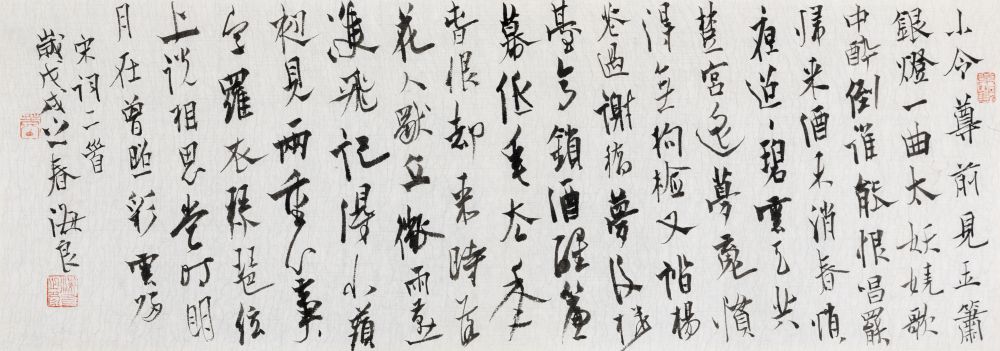 小令尊前見玉簫
銀燈一曲太妖嬈歌
中醉倒誰能恨唱罷
歸来酒未消春悄
夜迢〻碧雲天共
楚宮遙夢魂慣
得無拘檢又踏楊
花過謝橋夢後樓
臺高鎖酒醒簾
幕低垂去年
春恨却来時落
花人獨立微雨燕
雙飛記得小蘋
初見兩重心
字羅衣琵琶弦
上说相思當时明
月在曾照彩雲歸
宋词二首
歲戊戌之春海良